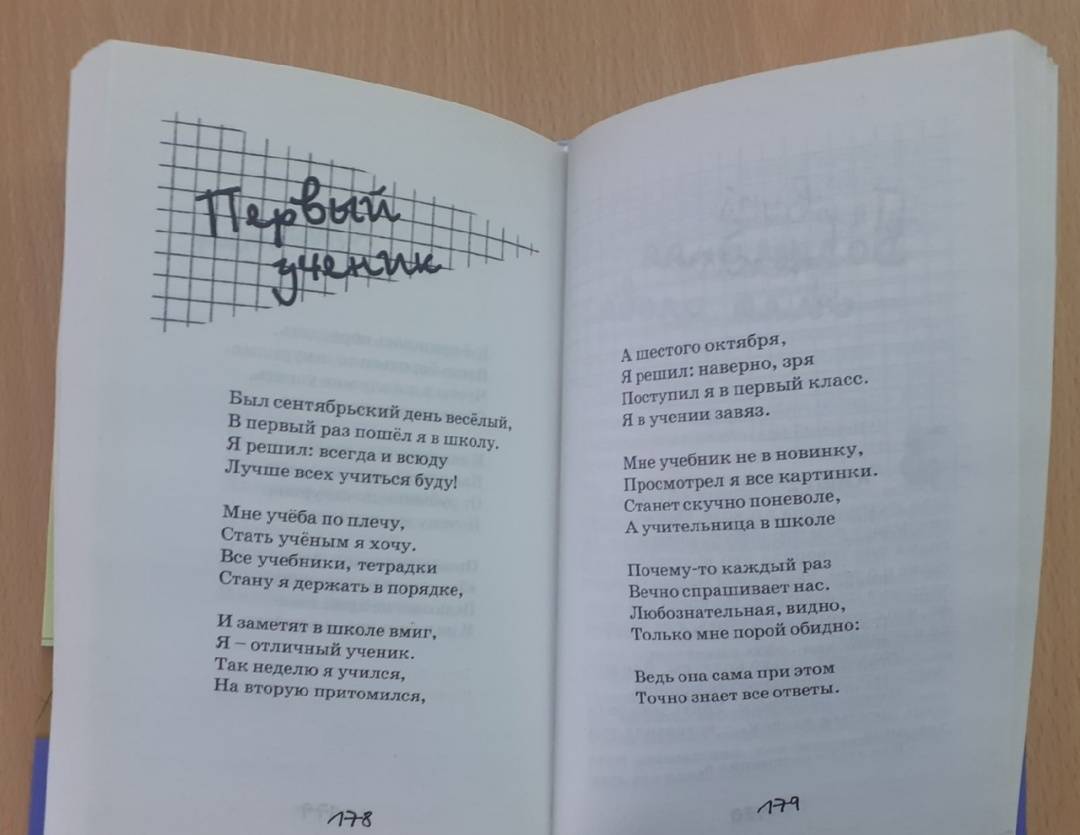 Первый
ученик
Был сентябрьский день весёлый,
В первый раз пошёл я в школу.
Я решил: всегда и всюду
Лучше всех учиться буду!
Мне учёба по плечу,
Стать учёным я хочу.
Все учебники, тетрадки
Стану я держать в порядке,
И заметят в школе вмиг,
Я – отличный ученик.
Так неделю я учился,
На вторую притомился,
178
А шестого октября,
Я решил: наверно, зря
Поступил я в первый класс.
Я в учении завяз.
Мне учебник не в новинку,
Просмотрел я все картинки.
Станет скучно поневоле,
А учительница в школе
Почему-то каждый раз
Вечно спрашивает нас.
Любознательная, видно,
Только мне порой обидно:
Ведь она сама при этом
Точно знает все ответы.
179